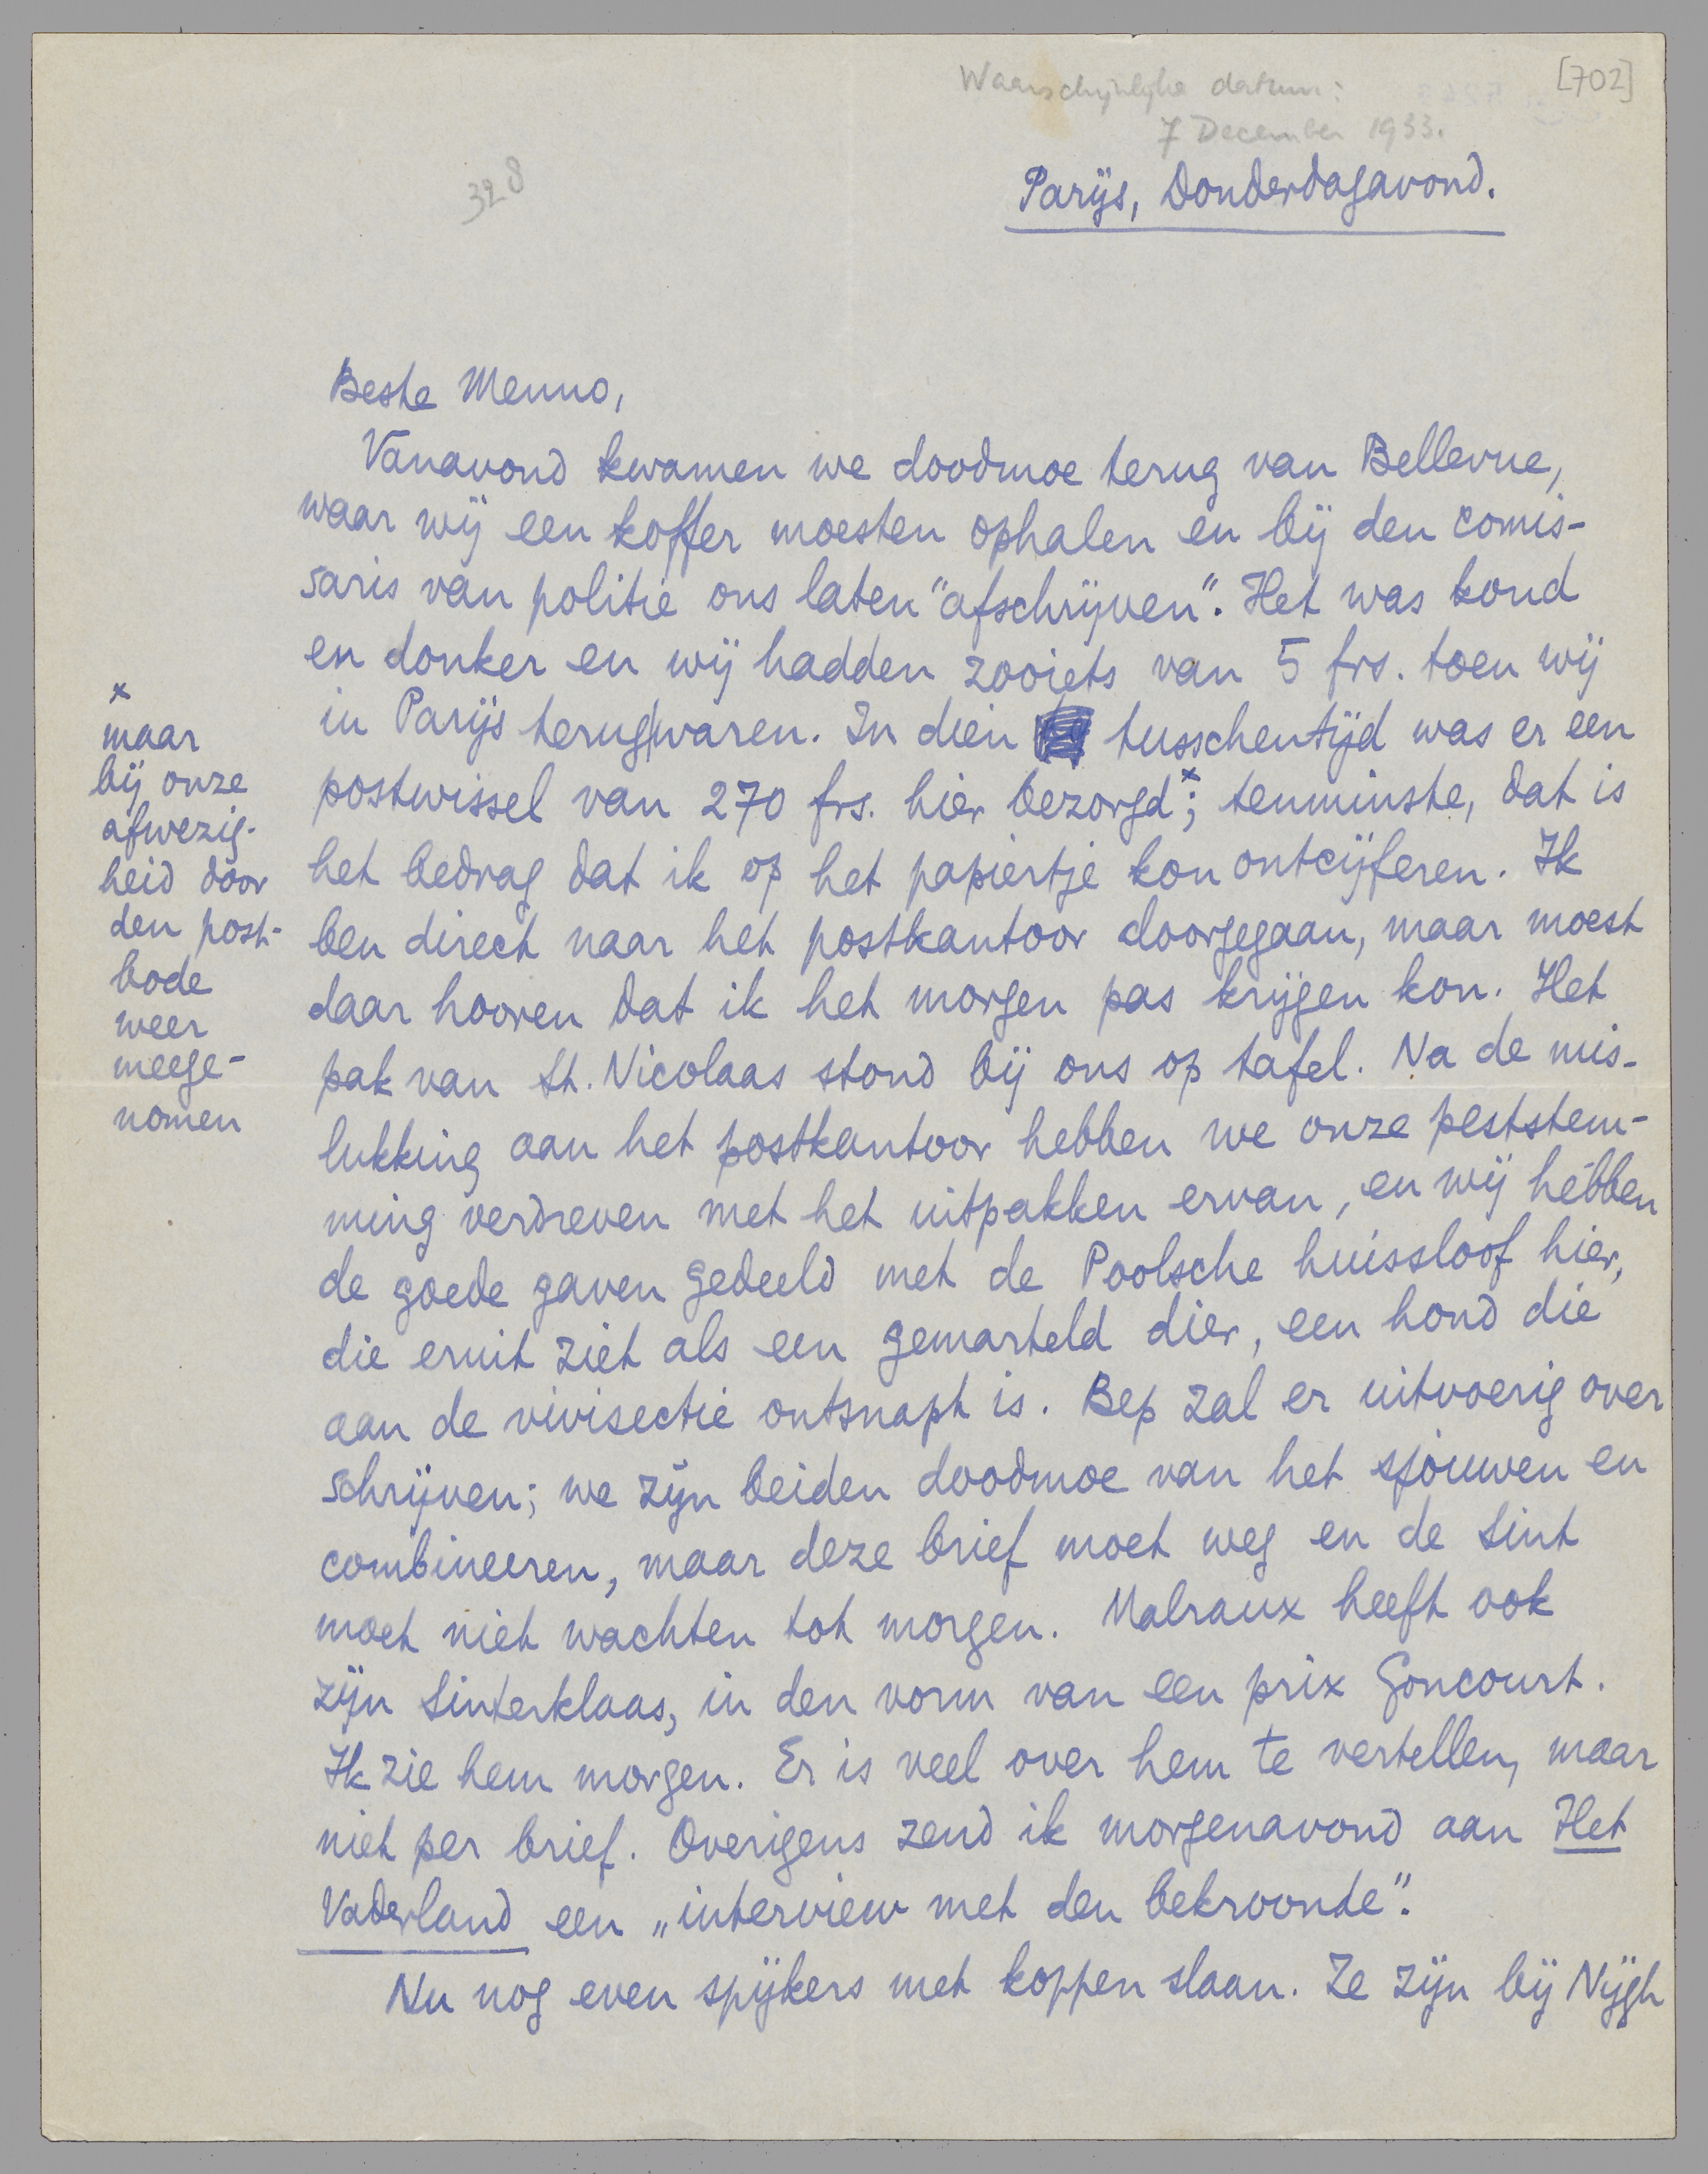 Waarschijnlijke datum:
[702]
7 December 1933.
328
Parijs, Donderdagavond.
Beste Menno,
Vanavond kwamen we doodmoe terug van Bellevue,
waar wij een koffer moesten ophalen en bij den comis-
saris van politie ons laten "afschrijven". Het was koud
en donker en wij hadden zooiets van 5 frs. toen wij
in Parijs terug|waren. In dien tusschentijd was er een
postwissel van 270 frs. hier bezorgd x; tenminste, dat is
het bedrag dat ik op het papiertje kon ontcijferen. Ik
ben direct naar het postkantoor doorgegaan, maar moest
daar hooren dat ik het morgen pas krijgen kon. Het
pak van St. Nicolaas stond bij ons op tafel. Na de mis-
lukking aan het postkantoor hebben we onze peststem-
ming verdreven met het uitpakken ervan, en wij hébben
de goede gaven gedeeld met de Poolsche huissloof hier,
die eruit ziet als een gemarteld dier, een hond die
aan de vivisectie ontsnapt is. Bep zal er uitvoerig over
schrijven; we zijn beiden doodmoe van het sjouwen en
combineeren, maar deze brief moet weg en de Sint
moet niet wachten tot morgen. Malraux heeft ook
zijn Sinterklaas, in den vorm van een prix Goncourt.
Ik zie hem morgen. Er is veel over hem te vertellen, maar
niet per brief. Overigens zend ik morgenavond aan Het
Vaderland een „interview met den bekroonde".
Nu nog even spijkers met koppen slaan. Ze zijn bij Nijgh
x
maar
bij onze
afwezig-
heid door
den post-
bode
weer
meege-
nomen